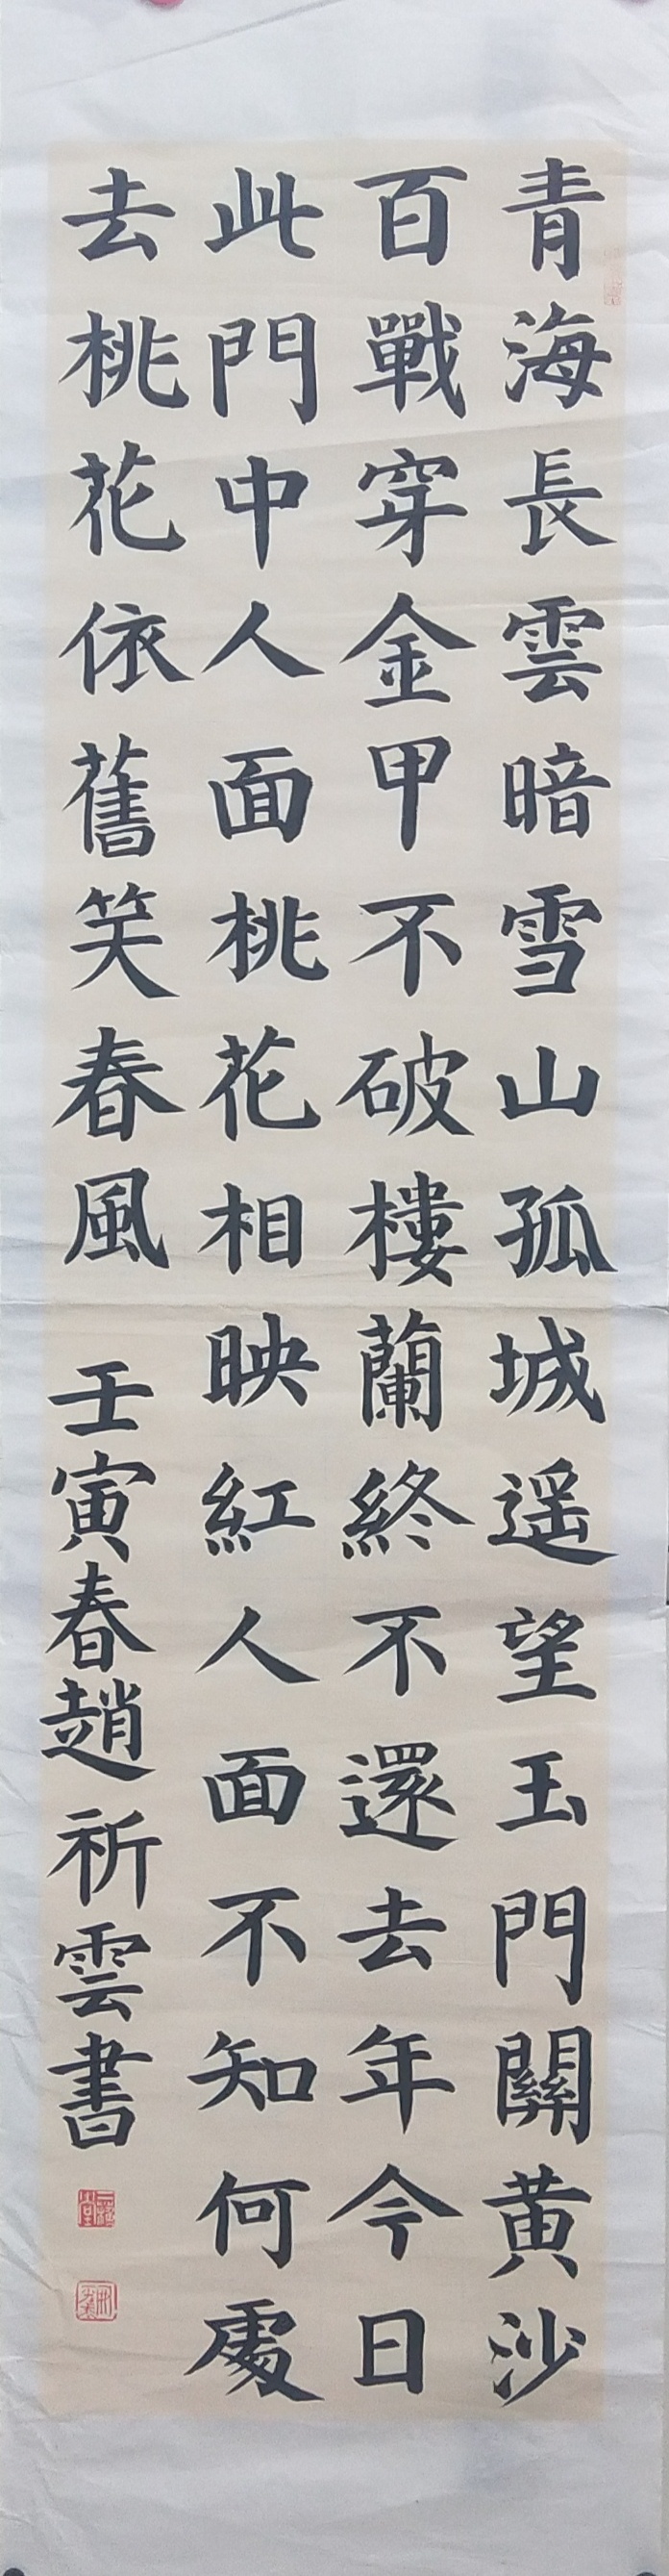 青海長雲暗雪山孤城遥望玉門關黄沙
百戰穿金甲不破樓蘭終不還去年今日
此門中人面桃花相映紅人面不知何處
去桃花依舊笑春風 壬寅春趙祈雲書